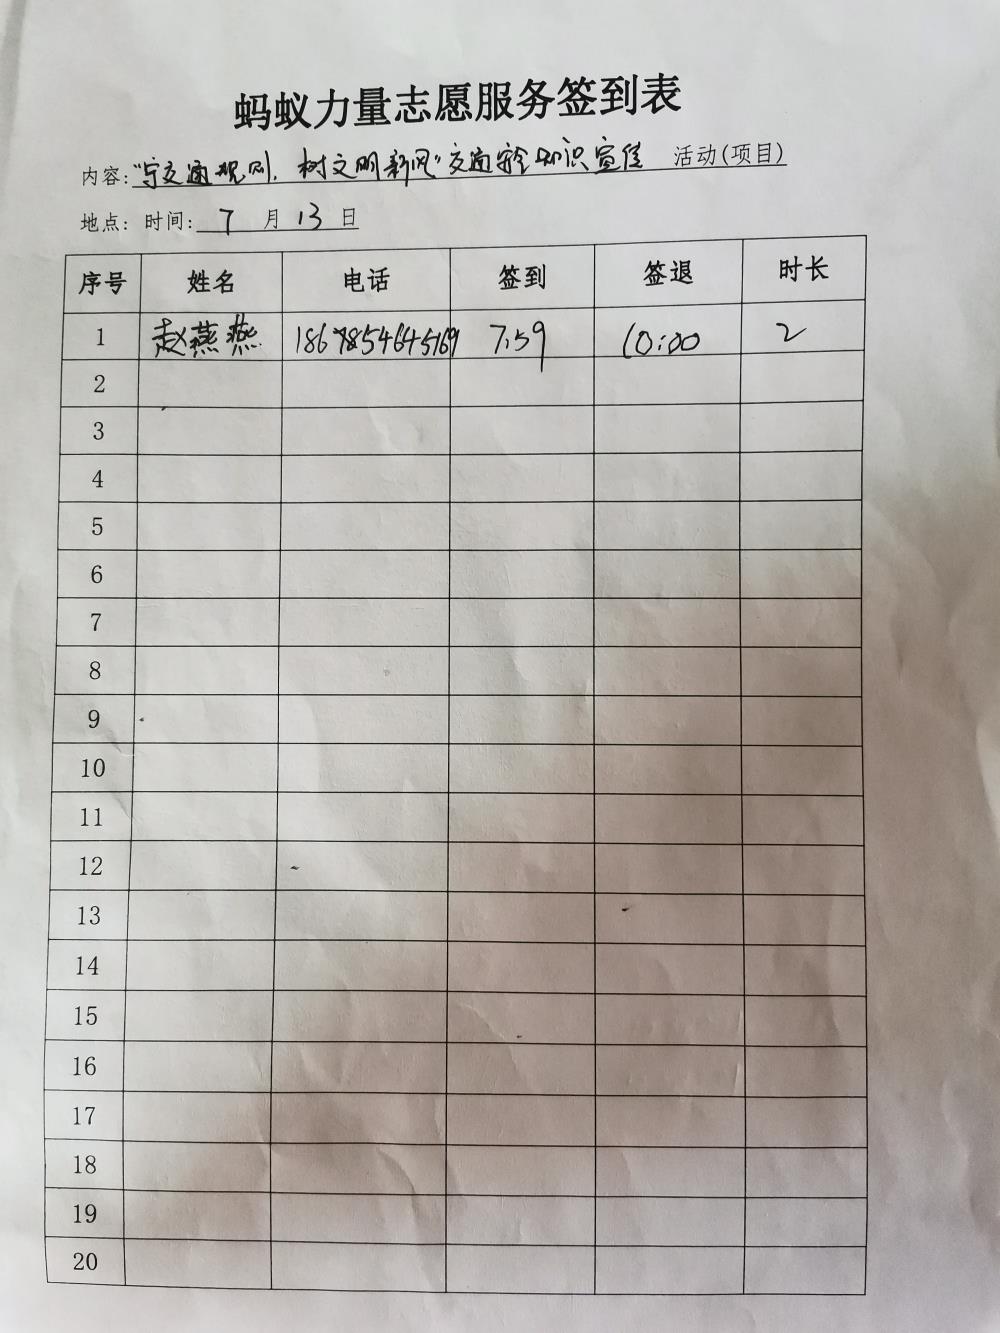 蚂蚁力量志愿服务签到表
内容:"守交通规则,树文明新风"交通安全知识宣传 活动(项目)
地点: 时间: 7 月 13 日
序号 姓名 电话 签到 签退 时长
1 赵燕燕 7:59 10:00 2
2
3
4
5
6
7
8
9
10
11
12
13
14
15
16
17
18
19
20